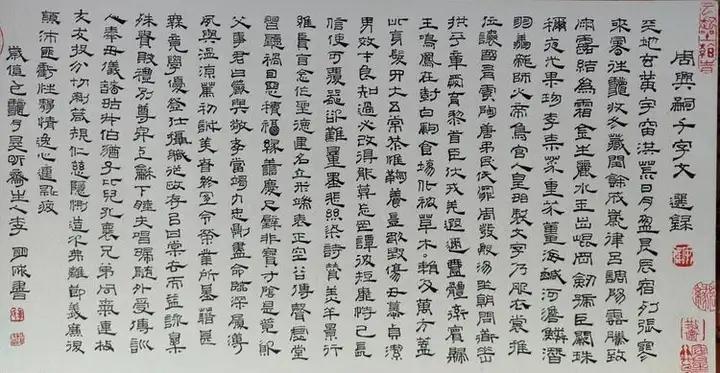 周興嗣千字文 選錄
天地玄黃宇宙洪荒日月盈昃辰宿列張寒
來暑往秋收冬藏閏餘成歲律呂調陽雲騰致
雨露結為霜金生麗水玉出崑岡劍號巨闕珠
稱夜光果珍李柰菜重芥薑海鹹河淡鱗潛
羽翔龍師火帝鳥官人皇始制文字乃服衣裳推
位讓國有虞陶唐弔民伐罪周發殷湯坐朝問道垂
拱平章愛育黎首臣伏戎羌遐邇壹體率賓歸
王鳴鳳在樹白駒食場化被草木賴及萬方蓋
此身髮四大五常恭惟鞠養豈敢毀傷女慕貞潔
男效才良知過必改得能莫忘罔談彼短靡恃己長
信使可覆器欲難量墨悲絲染詩贊羔羊景行
維賢克念作聖德建名立形端表正空谷傳聲虛堂
習聽禍因惡積福緣善慶尺璧非寶寸陰是競資
父事君曰嚴與敬孝當竭力忠則盡命臨深履薄
夙興溫凊篤初誠美慎終宜令榮業所基籍甚
無竟學優登仕攝職從政存以甘棠去而益詠樂
殊貴賤禮別尊卑上和下睦夫唱婦隨外受傅訓
入奉母儀諸姑伯叔猶子比兒孔懷兄弟同氣連枝
交友投分切磨箴規仁慈隱惻造次弗離節義廉退
顛沛匪虧性靜情逸心動神疲
歲值之龍 書